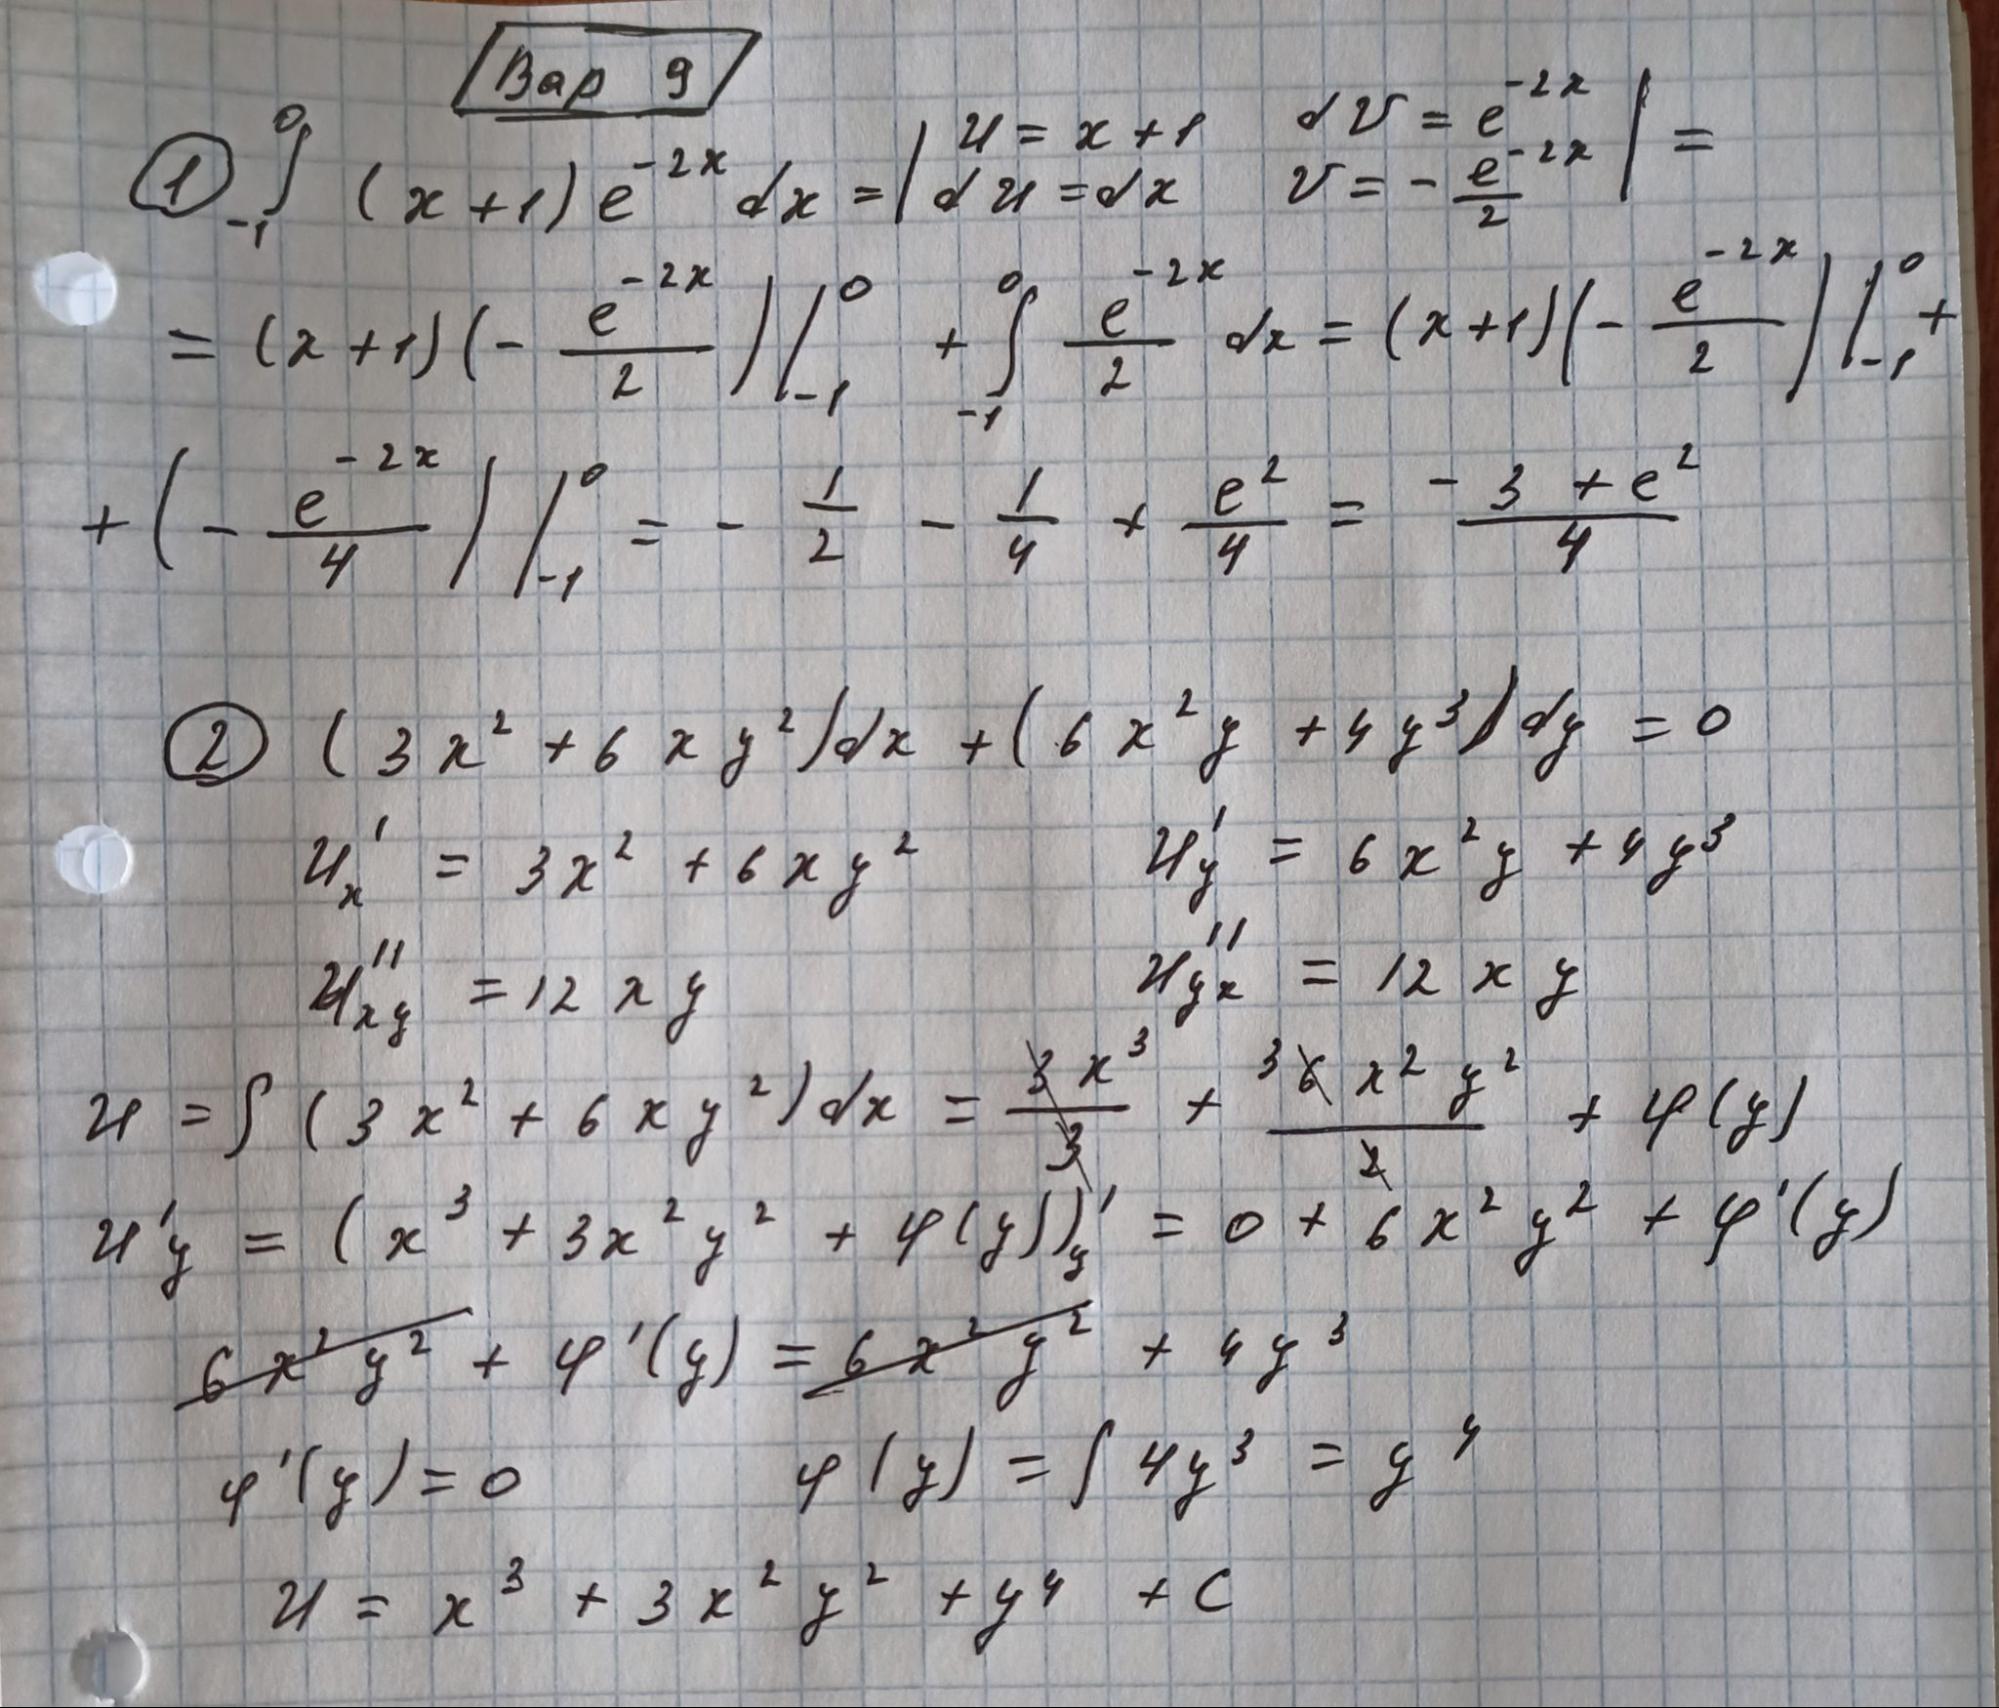 Вар 9
① ∫₋₁⁰ (x+1) e^{-2x} dx = | u = x+1 dv = e^{-2x} du = dx v = - e^{-2x}/2 | =
= (x+1)(- e^{-2x}/2) |₋₁⁰ + ∫₋₁⁰ e^{-2x}/2 dx = (x+1)(- e^{-2x}/2) |₋₁⁰ +
+ (- e^{-2x}/4) |₋₁⁰ = - 1/2 - 1/4 + e²/4 = (-3 + e²)/4
② (3x² + 6xy²)dx + (6x²y + 4y³)dy = 0
u'ₓ = 3x² + 6xy² u'_y = 6x²y + 4y³
u''_{xy} = 12xy u''_{yx} = 12xy
u = ∫ (3x² + 6xy²)dx = 3x³/3 + ³6x²y²/2 + φ(y)
u'_y = (x³ + 3x²y² + φ(y))'_y = 0 + 6x²y² + φ'(y)
6x²y² + φ'(y) = 6x²y² + 4y³
φ'(y) = 0 φ(y) = ∫ 4y³ = y⁴
u = x³ + 3x²y² + y⁴ + C